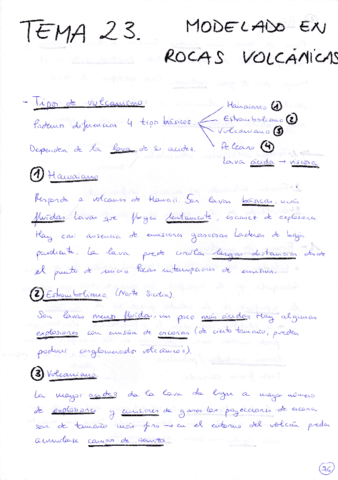 TEMA 23. MODELADO EN
ROCAS VOLCÁNICAS
- Tipos de vulcanismo:
Podemos diferenciar 4 tipos básicos.
Hawaiano ①
Estromboliano ②
Vulcaniano ③
Peleano ④
Dependen de la lava de su acidez.
lava ácida → viscosa
① Hawaiano
Responde a volcanes de Hawaii Son lavas básicas, muy
fluidas. Lavas que fluyen lentamente, escasez de explosiones
Hay casi ausencia de emisiones gaseosas Laderas de baja
pendiente. La lava puede circular largas distancias desde
el punto de inicio Pocas interrupciones de emisión.
② Estromboliano (Norte Sicilia).
Son lavas menos fluidas, un poco más ácidas Hay algunas
explosiones con emisión de escorias (de cierto tamaño, pueden
producir conglomerados volcánicos).
③ Vulcaniano
La mayor acidez de la lava da lugar a mayor número
de explosiones y emisiones de gases las proyecciones de escoria
son de tamaño más fino → en el entorno del volcán pueden
acumularse campos de ceniza.
76